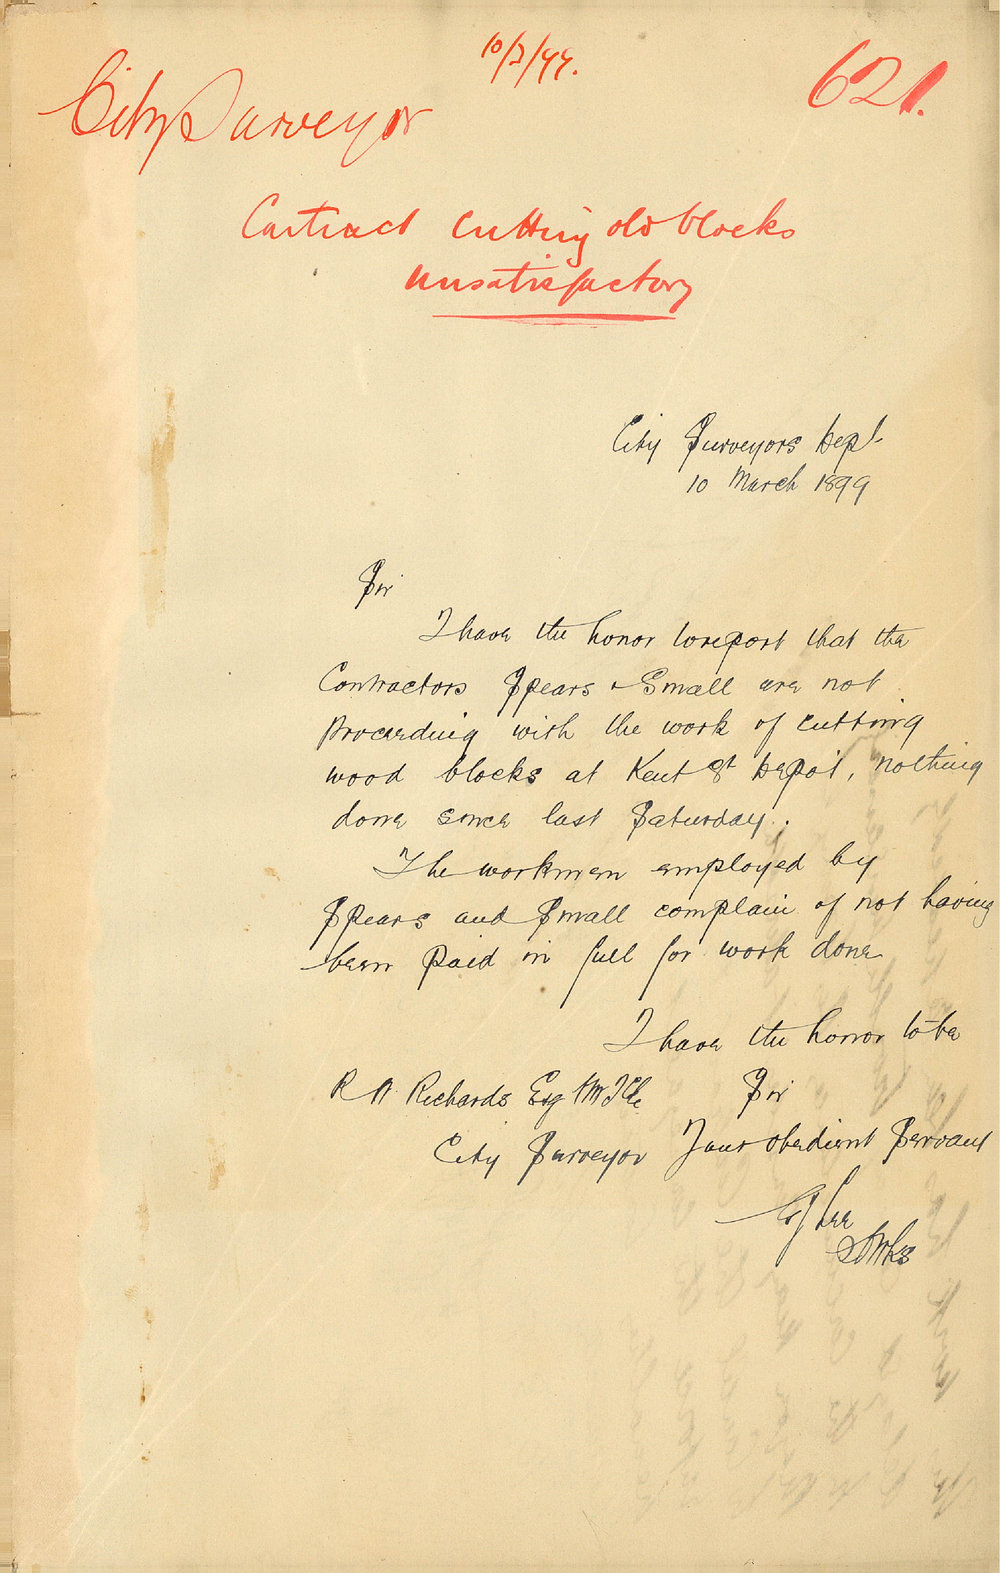 10/3/99.
621.
City Surveyor
Contract Cutting old blocks
unsatisfactory
City Surveyors Dept
10 March 1899
Sir
I have the honor to report that the
Contractors Spears & Small are not
proceeding with the work of cutting
wood blocks at Kent St Depot, nothing
done since last Saturday.
The workmen employed by
Spears and Small complain of not having
been paid in full for work done
I have the honor to be
Sir
Your obedient Servant
R W Richards Esq M I C E
City Surveyor